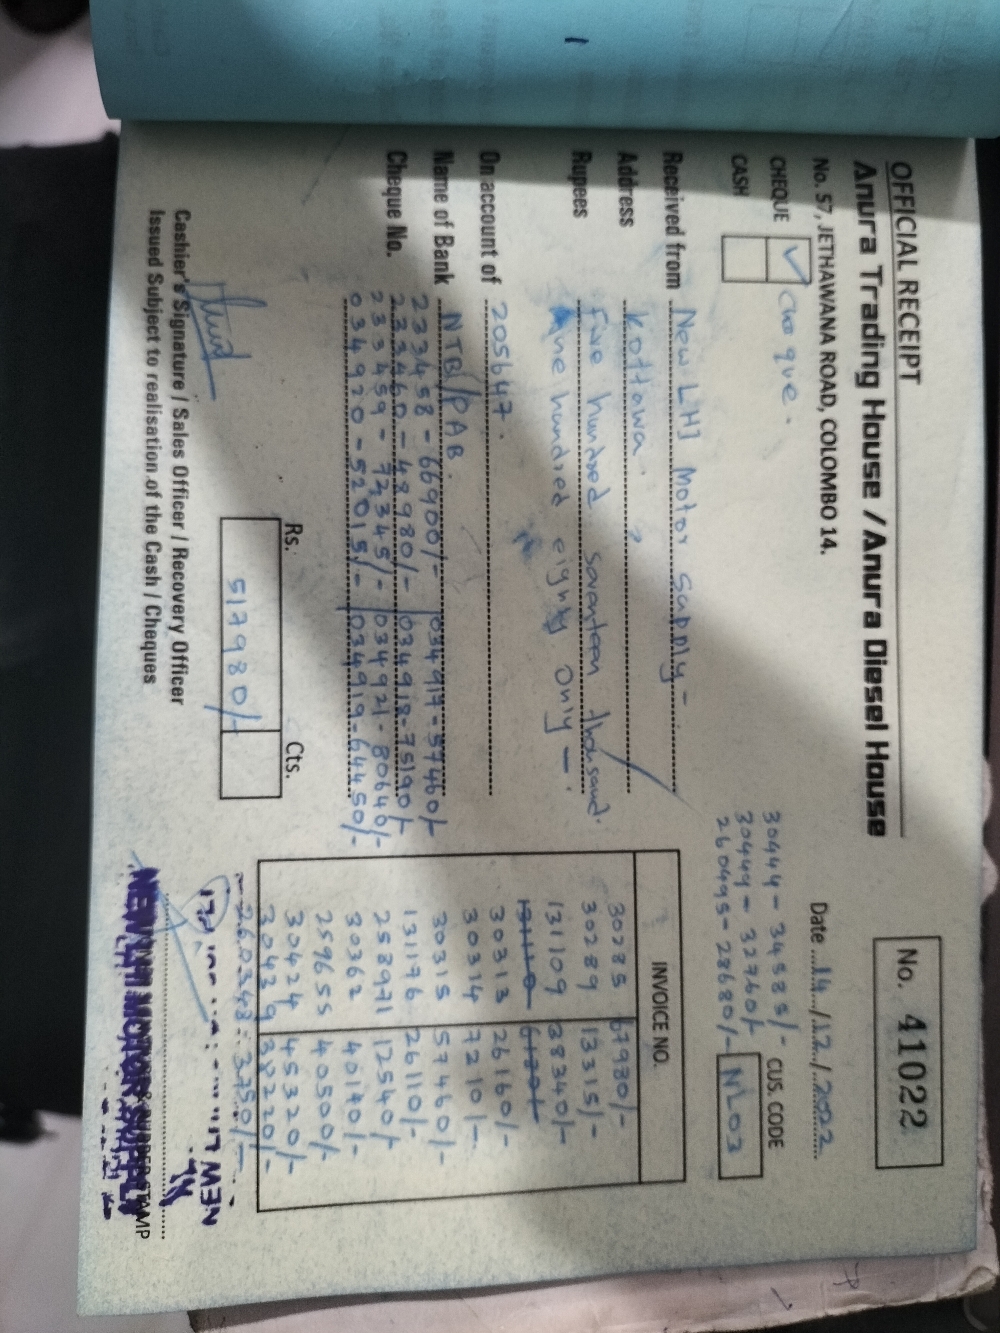 OFFICIAL RECEIPT
Anura Trading House / Anura Diesel House
No. 57, JETHAWANA ROAD, COLOMBO 14.
No. 41022
Date 14/12/2022
CHEQUE ✓ Cheque.
CASH
30444 - 34585/-
30449 - 32760/-
260495 - 28680/-
CUS. CODE NL03
Received from New LHI Motor Supply -
Address Kottawa.
Rupees five hundred seventeen thousand
nine hundred eighty only -
On account of 205647.
Name of Bank NTB/PAB.
Cheque No.
233458 - 66900/- 034917 - 57460/-
233460 - 48980/- 034918 - 75190/-
233459 - 72345/- 034921 - 80640/-
034920 - 52015/- 034919 - 64450/-
Rs. Cts.
517980/-
INVOICE NO.
30285 67980/-
30289 13315/-
131109 38340/-
30313 26160/-
30314 7210/-
30315 57460/-
131176 26110/-
258971 12540/-
30362 40170/-
259655 40500/-
30424 45320/-
30439 38220/-
260348 3750/-
Cashier's Signature / Sales Officer / Recovery Officer
Issued Subject to realisation of the Cash / Cheques
NEW LHI MOTOR SUPPLY
STAMP